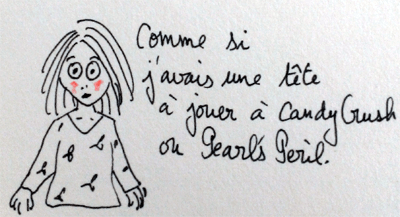 Comme si
j'avais une tête
à jouer à Candy Crush
ou Pearl's Peril.